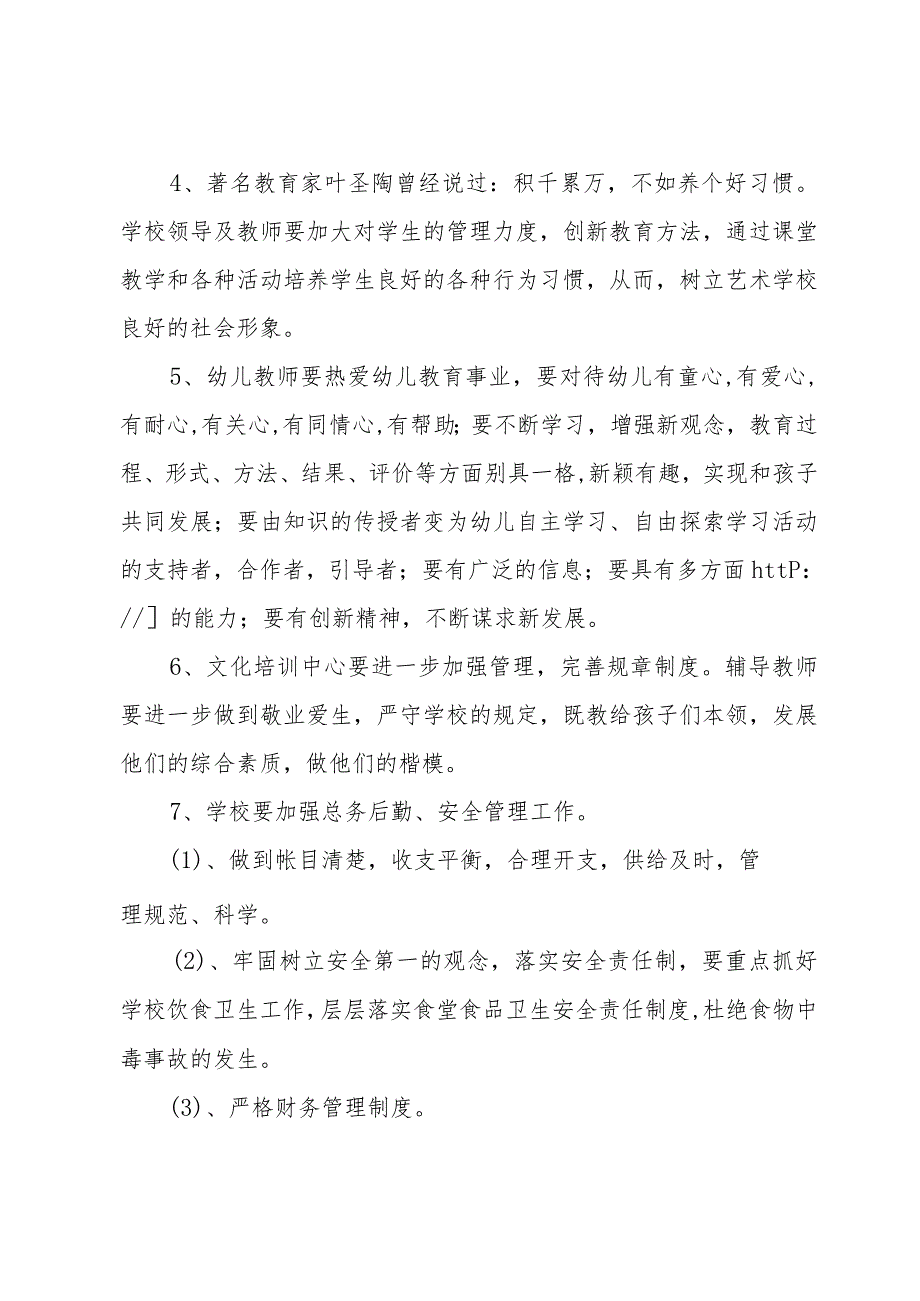 4、著名教育家叶圣陶曾经说过：积千累万，不如养个好习惯。
学校领导及教师要加大对学生的管理力度，创新教育方法，通过课堂
教学和各种活动培养学生良好的各种行为习惯，从而，树立艺术学校
良好的社会形象。
5、幼儿教师要热爱幼儿教育事业，要对待幼儿有童心,有爱心,
有耐心,有关心,有同情心,有帮助;要不断学习，增强新观念，教育过
程、形式、方法、结果、评价等方面别具一格,新颖有趣，实现和孩子
共同发展；要由知识的传授者变为幼儿自主学习、自由探索学习活动
的支持者，合作者，引导者；要有广泛的信息；要具有多方面 httP：
//］的能力；要有创新精神，不断谋求新发展。
6、文化培训中心要进一步加强管理，完善规章制度。辅导教师
要进一步做到敬业爱生，严守学校的规定，既教给孩子们本领，发展
他们的综合素质，做他们的楷模。
7、学校要加强总务后勤、安全管理工作。
(1)、做到帐目清楚，收支平衡，合理开支，供给及时，管
理规范、科学。
(2)、牢固树立安全第一的观念，落实安全责任制，要重点抓好
学校饮食卫生工作,层层落实食堂食品卫生安全责任制度,杜绝食物中
毒事故的发生。
(3)、严格财务管理制度。